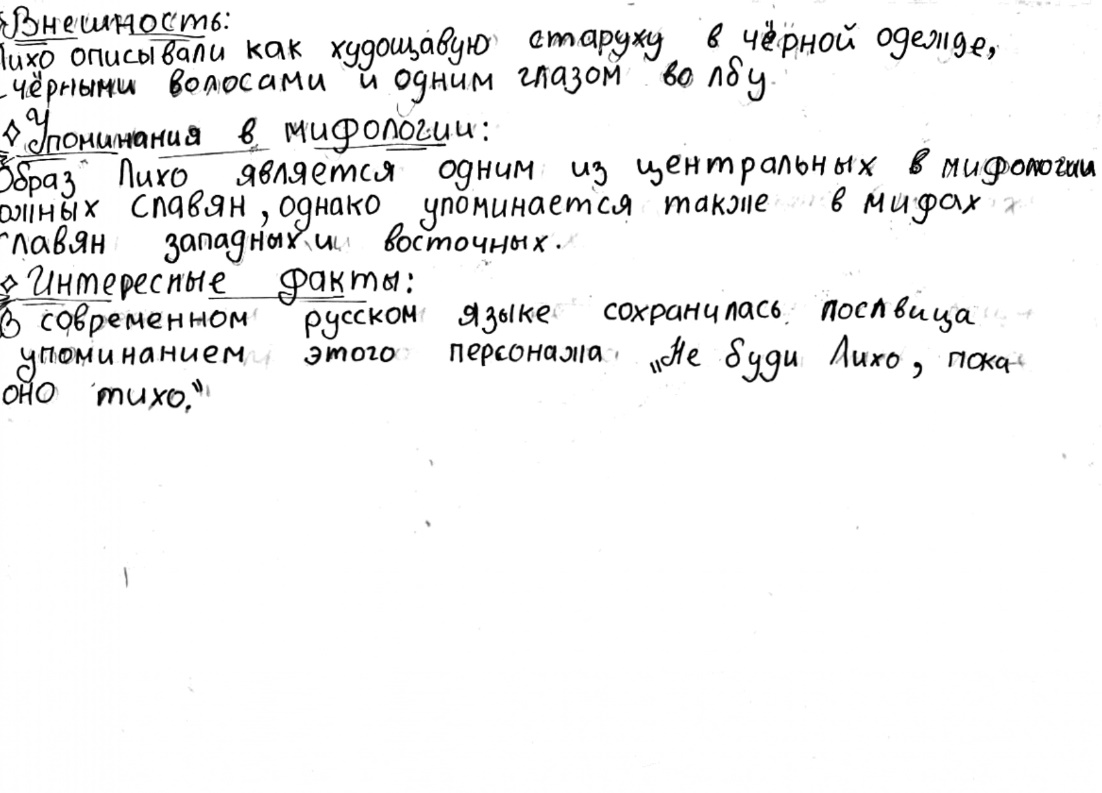 Внешность:
Лихо описывали как худощавую старуху в чёрной одежде,
с чёрными волосами и одним глазом во лбу
Упоминания в мифологии:
Образ Лихо является одним из центральных в мифологии
южных славян, однако упоминается также в мифах
славян западных и восточных.
Интересные факты:
В современном русском языке сохранилась пословица
упоминанием этого персонажа „Не буди Лихо, пока
оно тихо."